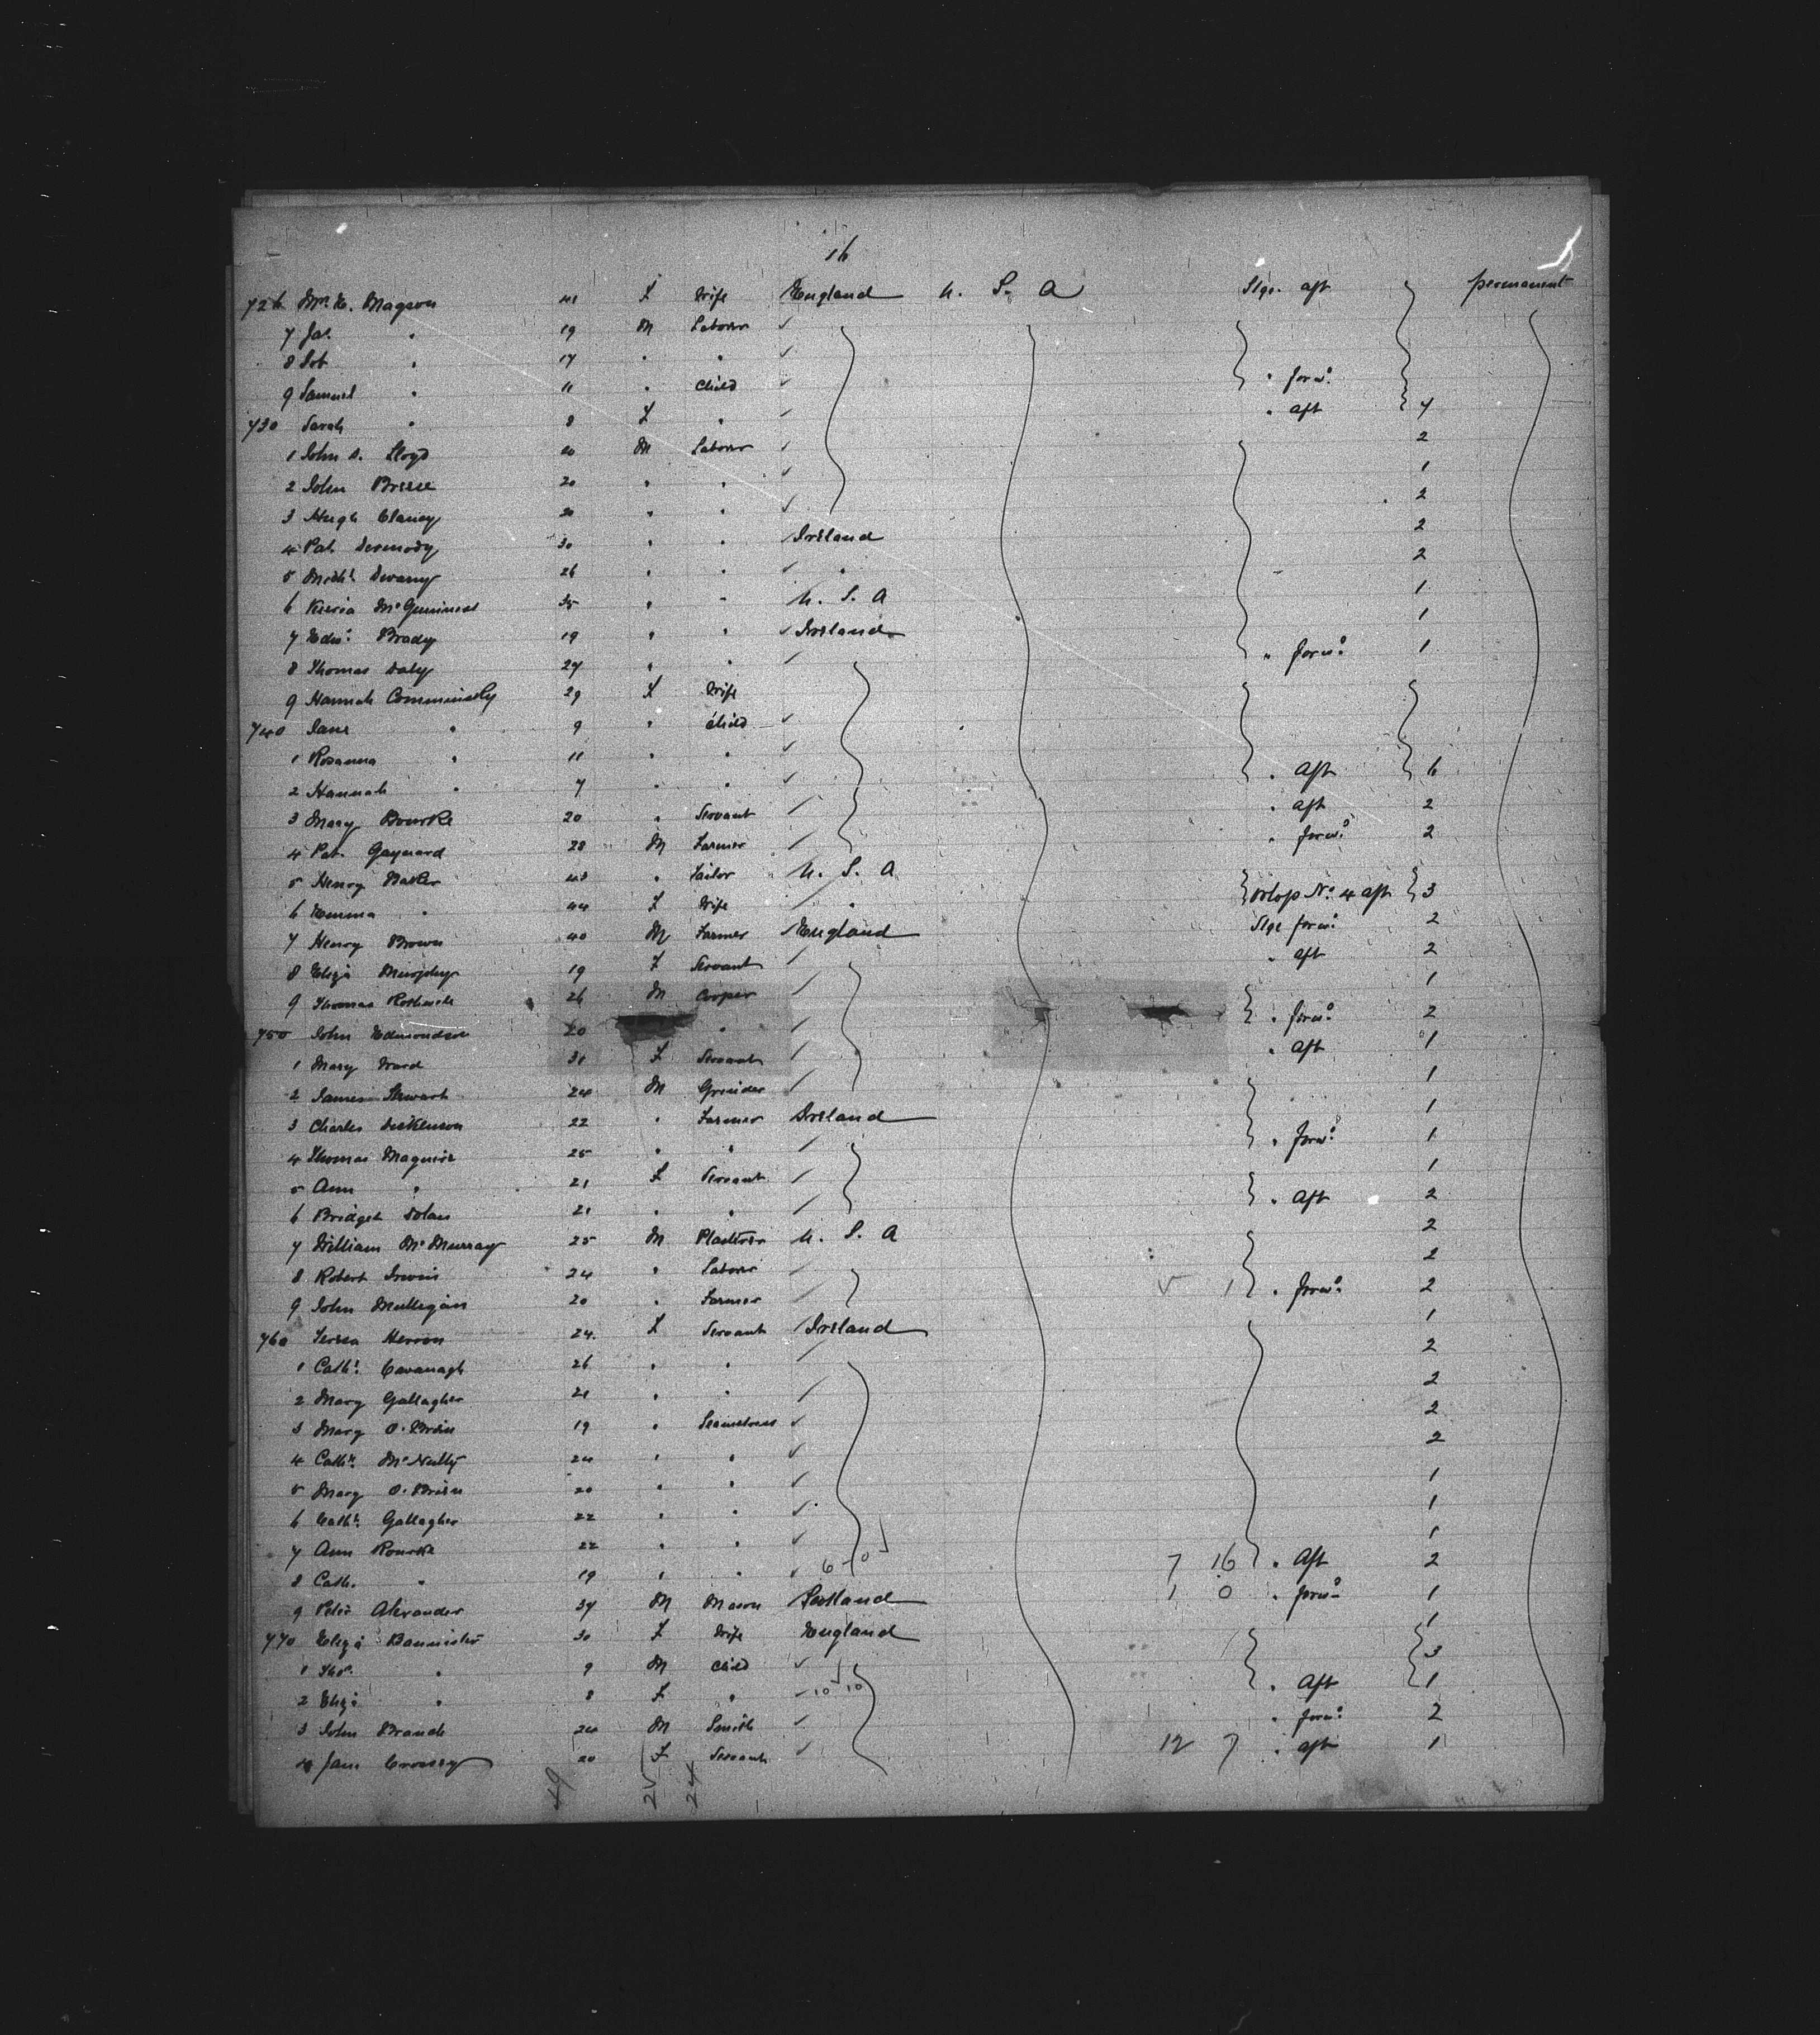 16
726 Mrs E. Magson 41 F Wife England U. S. A Stge. aft permanent
7 Jas. " 19 M Laborer ✓
8 Sob " 17 " " ✓
9 Samuel " 11 " Child ✓ " forwd.
730 Sarah " 8 F " ✓ " aft 7
1 John D. Lloyd 20 M Laborer ✓ 2
2 John Breese 20 " " ✓ 1
3 Hugh Clancy 20 " " ✓ 2
4 Pat Dermody 30 " " Ireland 2
5 Michl. 26 " " ✓ " 2
6 McGuiness 35 " " U. S. A 1
7 Edwd. Brady 19 " " ✓ Ireland 1
8 Thomas Daly 27 " " ✓ " forwd. 1
9 Hannah 29 F Wife
740 Jane " 9 " Child ✓
1 Rosanna " 11 " " ✓
2 Hannah " 7 " " ✓ " Aft 6
3 Mary Bourke 20 " Servant ✓ " aft 2
4 Pat. Gaynard 28 M Farmer ✓ " forwd. 2
5 Henry Baker 43 " Tailor U. S. A
6 Emma " 44 F Wife ✓ " Orlop No. 4 aft 3
7 Henry Brown 40 M Farmer England Stge forwd. 2
8 Eliza Murphy 19 F Servant ✓ " aft 2
9 Thomas 26 M Cooper ✓ 1
750 John Edmondson 20 " ✓ " forwd. 2
1 Mary Ward 31 F Servant ✓ " Aft 1
2 James Stewart 24 M Grinder ✓ 1
3 Charles Dickenson 22 " Farmer Ireland 1
4 Thomas Maguire 25 " " ✓ " forwd. 1
5 Ann " 21 F Servant ✓ 1
6 Bridget Dolan 21 " " ✓ " Aft 2
7 William McMurray 25 M Plasterer U. S. A 2
8 Robert Irwin 24 " Laborer ✓ 2
9 John Mulligan 20 " Farmer ✓ " forwd. 2
760 Teresa Herron 24 F Servant Ireland 1
1 Cathe. Cavanagh 26 " " ✓ 2
2 Mary Gallagher 21 " " ✓ 2
3 Mary O'Brien 19 " Seamstress ✓ 2
4 Cathe. McNulty 24 " " ✓ 2
5 Mary O'Brien 20 " " ✓ 1
6 Cathe. Gallagher 22 " " ✓ 1
7 Ann Rourke 22 " " ✓ 1
8 Cath. " 19 " " ✓ 6 0 7 16 " Aft 2
9 Peter Alexander 37 M Mason Scotland 1 0 " forwd. 1
770 Eliza Bannister 30 F Wife England 1
1 Thos. " 9 M Child ✓ 3
2 Eliza " 8 F " ✓ 10 10 " Aft 1
3 John Brand 24 M Smith ✓ " forwd. 2
4 Jane 20 F Servant ✓ 12 7 " aft 1
49 25 24